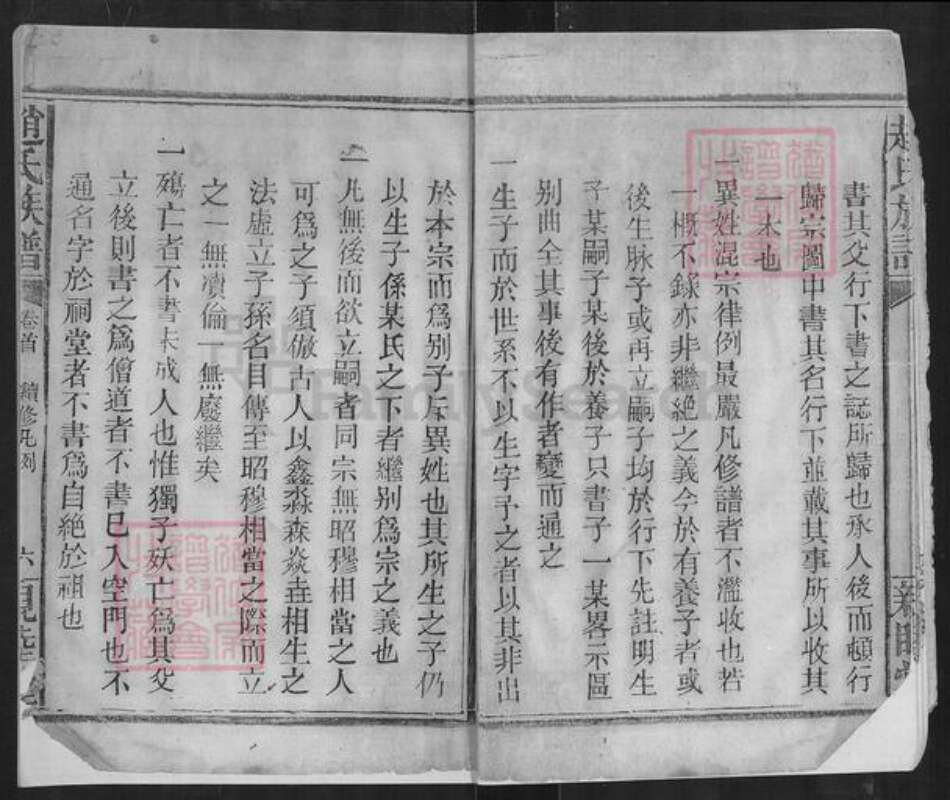 書其父行下書之誌所歸也承人後而頓行
歸宗圖中書其名行下並載其事所以收其
一本也
一異姓混宗律例最嚴凡修譜者不濫收也若
一概不錄亦非繼絶之義今於有養子者或
後生脉子或再立嗣子均於行下先註明生
子某嗣子某後於養子只書子一某畧示區
别曲全其事後有作者變而通之
一生子而於世系不以生字予之者以其非出
於本宗而爲别子斥異姓也其所生之子仍
以生子係某氏之下者繼别爲宗之義也
一凡無後而欲立嗣者同宗無昭穆相當之人
可爲之子須倣古人以鑫淼森焱垚相生之
法虛立子孫名目傳至昭穆相當之際而立
之一無瀆倫一無廢繼矣
一殤亡者不書未成人也惟獨子妖亡爲其父
立後則書之爲僧道者不書已入空門也不
通名字於祠堂者不書爲自絶於祖也
趙氏族譜 卷首 續修凡例 六
FamilySearch